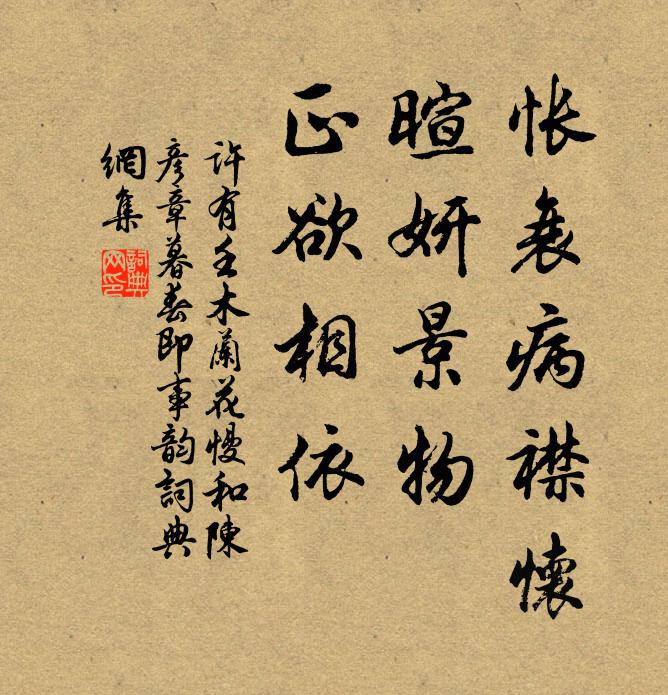 悵衰病襟懷
暄妍景物
正欲相依
許有壬木蘭花慢和陳
彥章暮春即事韵詞典
網集
詞典網印